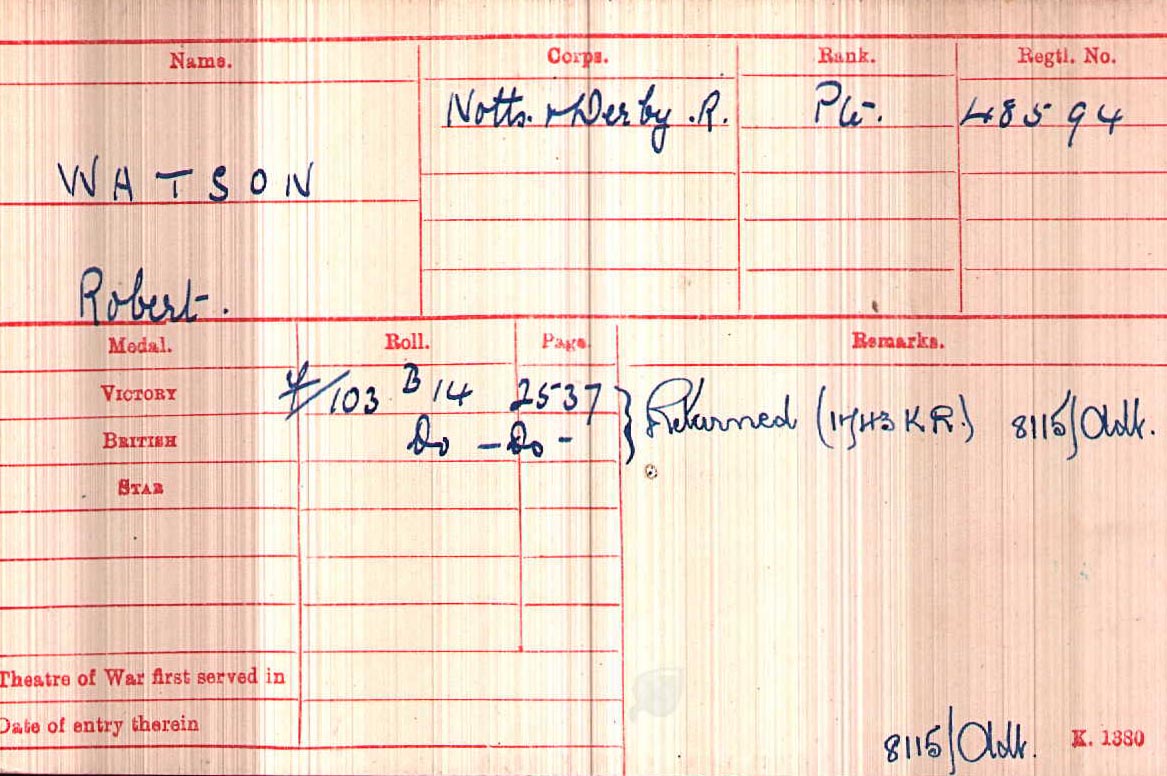 Name. Corps. Rank. Regtl. No.
Notts. & Derby .R. Pte. 48594
WATSON
Robert.
Medal. Roll. Page. Remarks.
VICTORY 103 B 14 2537 } Returned ( K.R.) 8115/Adt.
BRITISH Do - Do -
STAR
Theatre of War first served in
Date of entry therein
8115/Adt. K. 1380